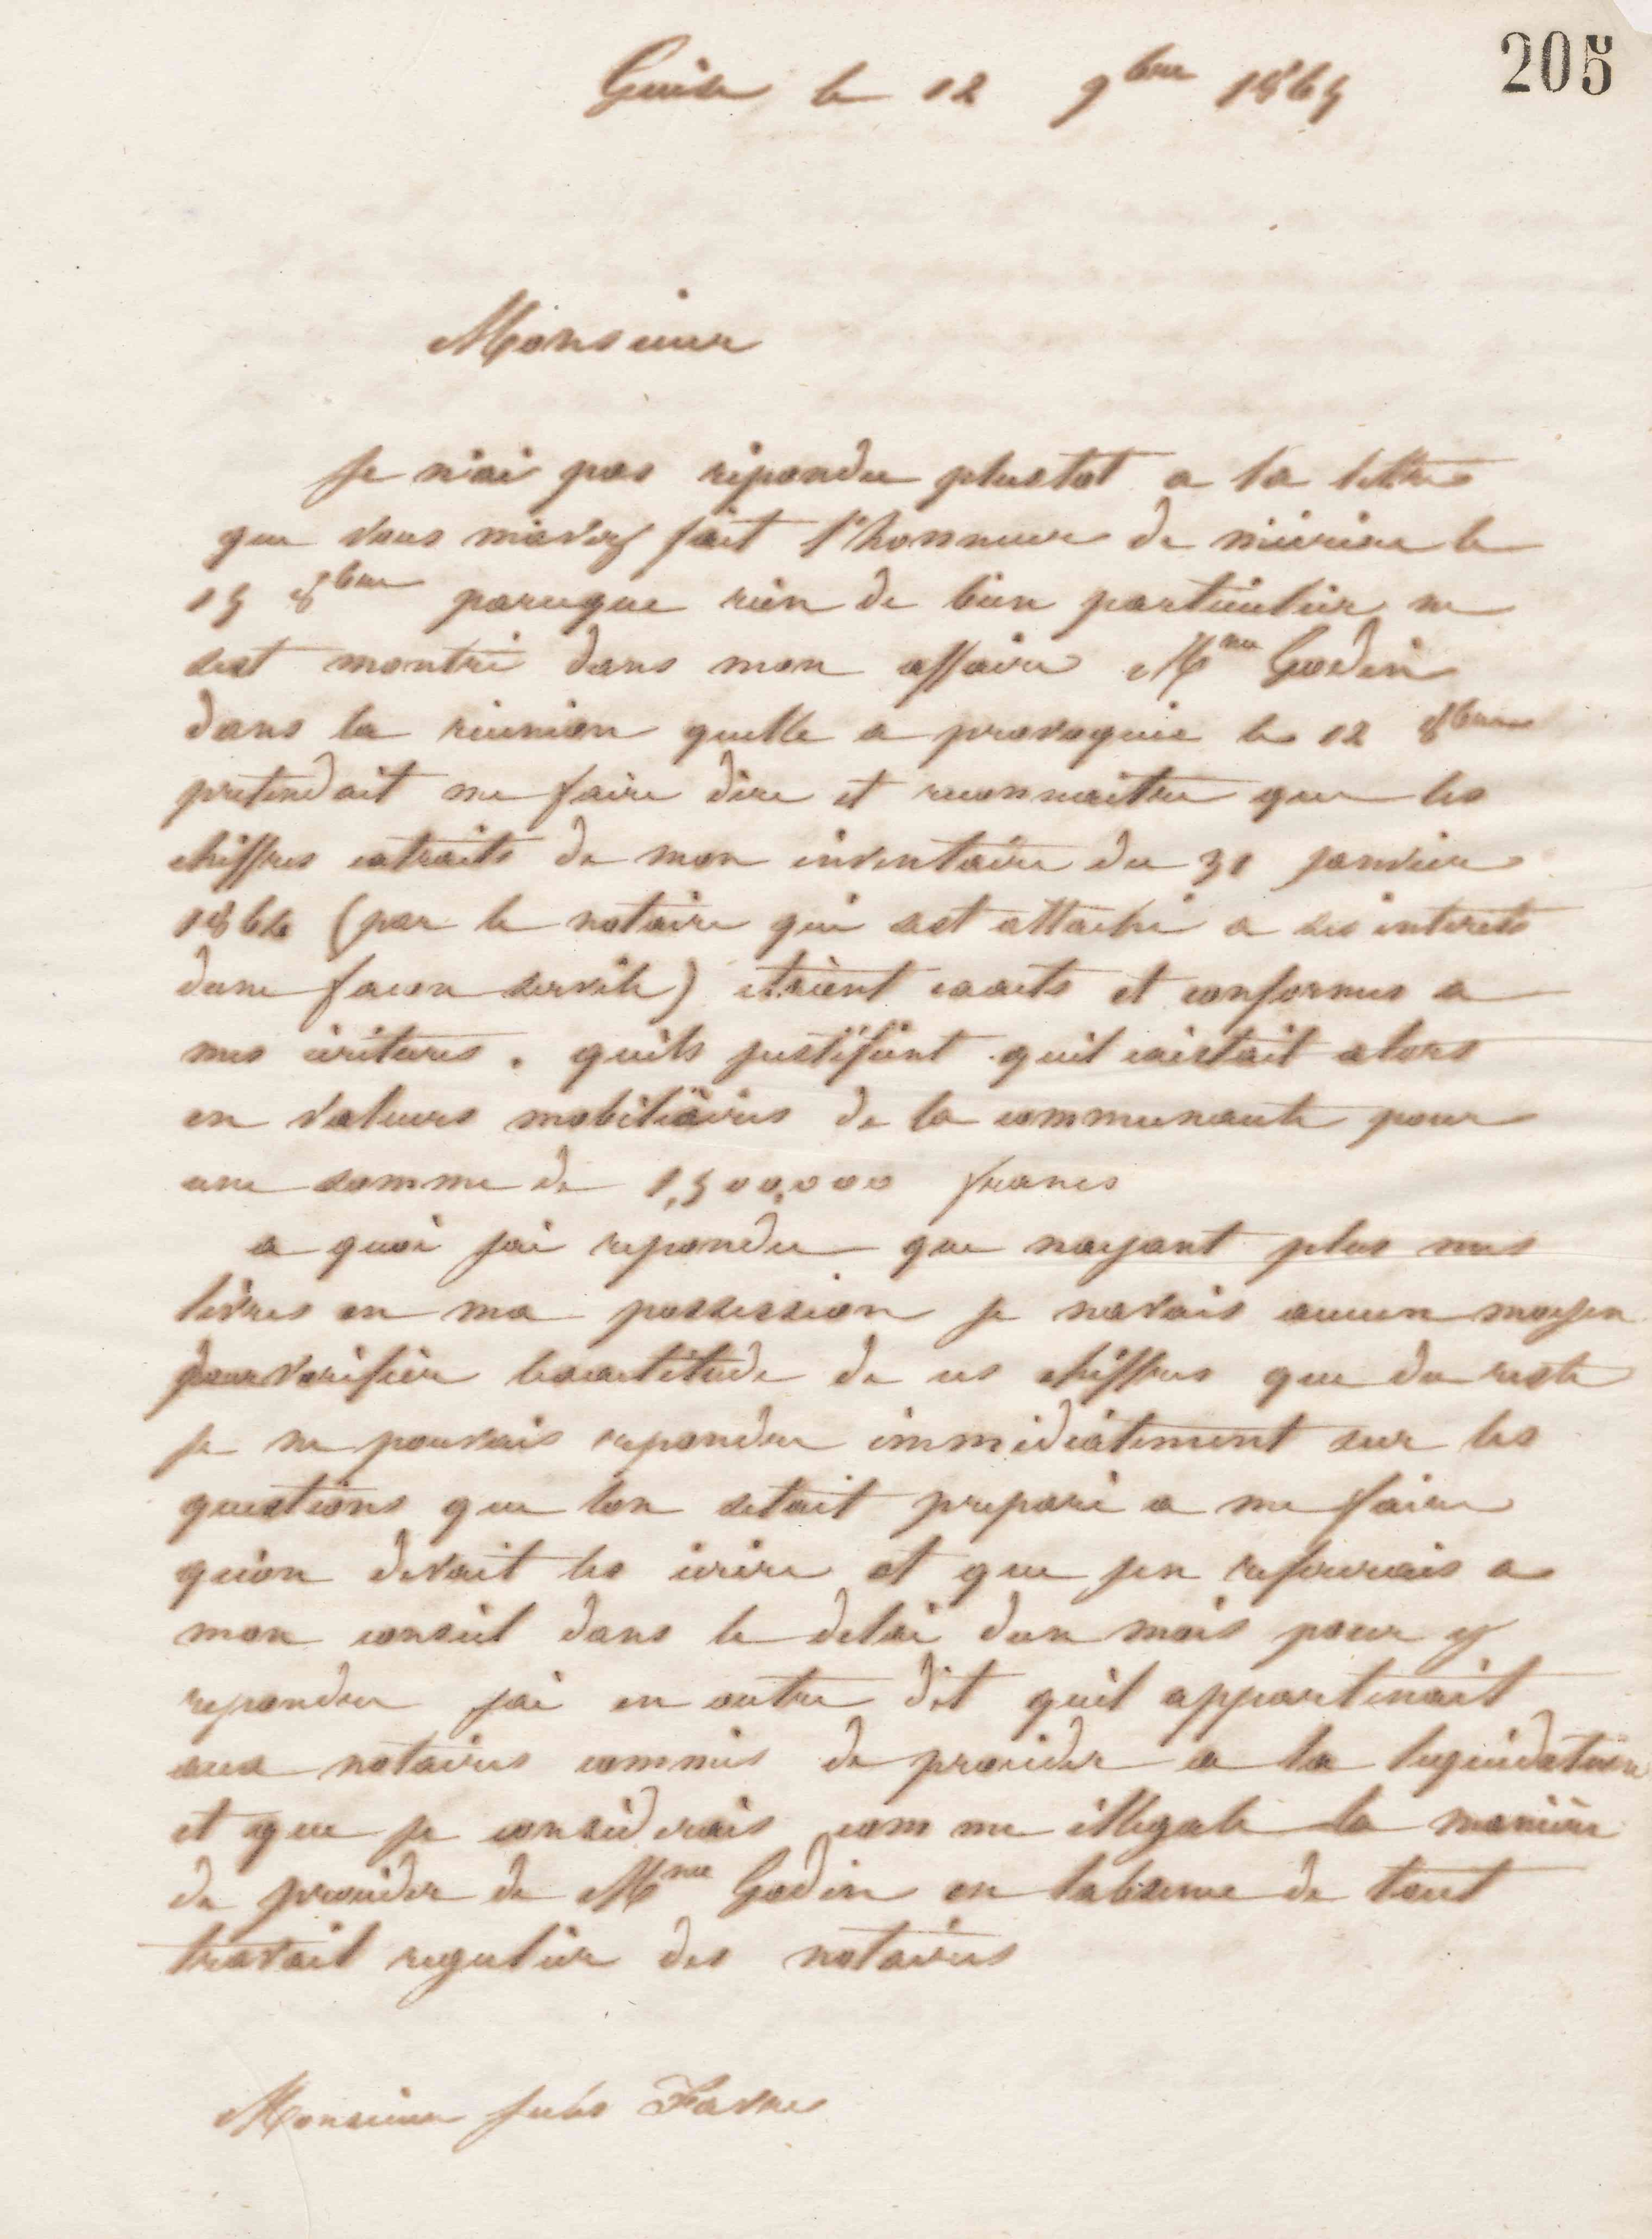 205
Guise le 12 9bre 1865
Monsieur
Je n'ai pas répondu plustot a la lettre
que vous m'avez fait l'honneur de m'écrire le
15 8bre parceque rien de bien particulier ne
sest montré dans mon affaire Mme Godin
dans la réunion quelle a provoquée le 12 8bre
pretendait me faire dire et reconnaitre que les
chiffres extraits de mon inventaire du 31 janvier
1864 (par le notaire qui sest attaché a ses interets
dune facon servile) etaient exacts et conformes a
mes écritures. quils justifient quil existait alors
en valeurs mobilières de la communauté pour
une somme de 1,500,000 francs
a quoi jai repondu que nayant plus mes
livres en ma possession je navais aucun moyen
pour verifier lexactitude de ces chiffres que du reste
je ne pouvais repondre immédiatement sur les
questions que lon setait preparé a me faire
quon devait les écrire et que jen refererais a
mon conseil dans le delai dun mois pour y
repondre jai en outre dit quil appartenait
aux notaires commis de proceder a la liquidation
et que je considerais comme illegale la manière
de proceder de Mme Godin en labsence de tout
travail regulier des notaires
Monsieur Jules Favre